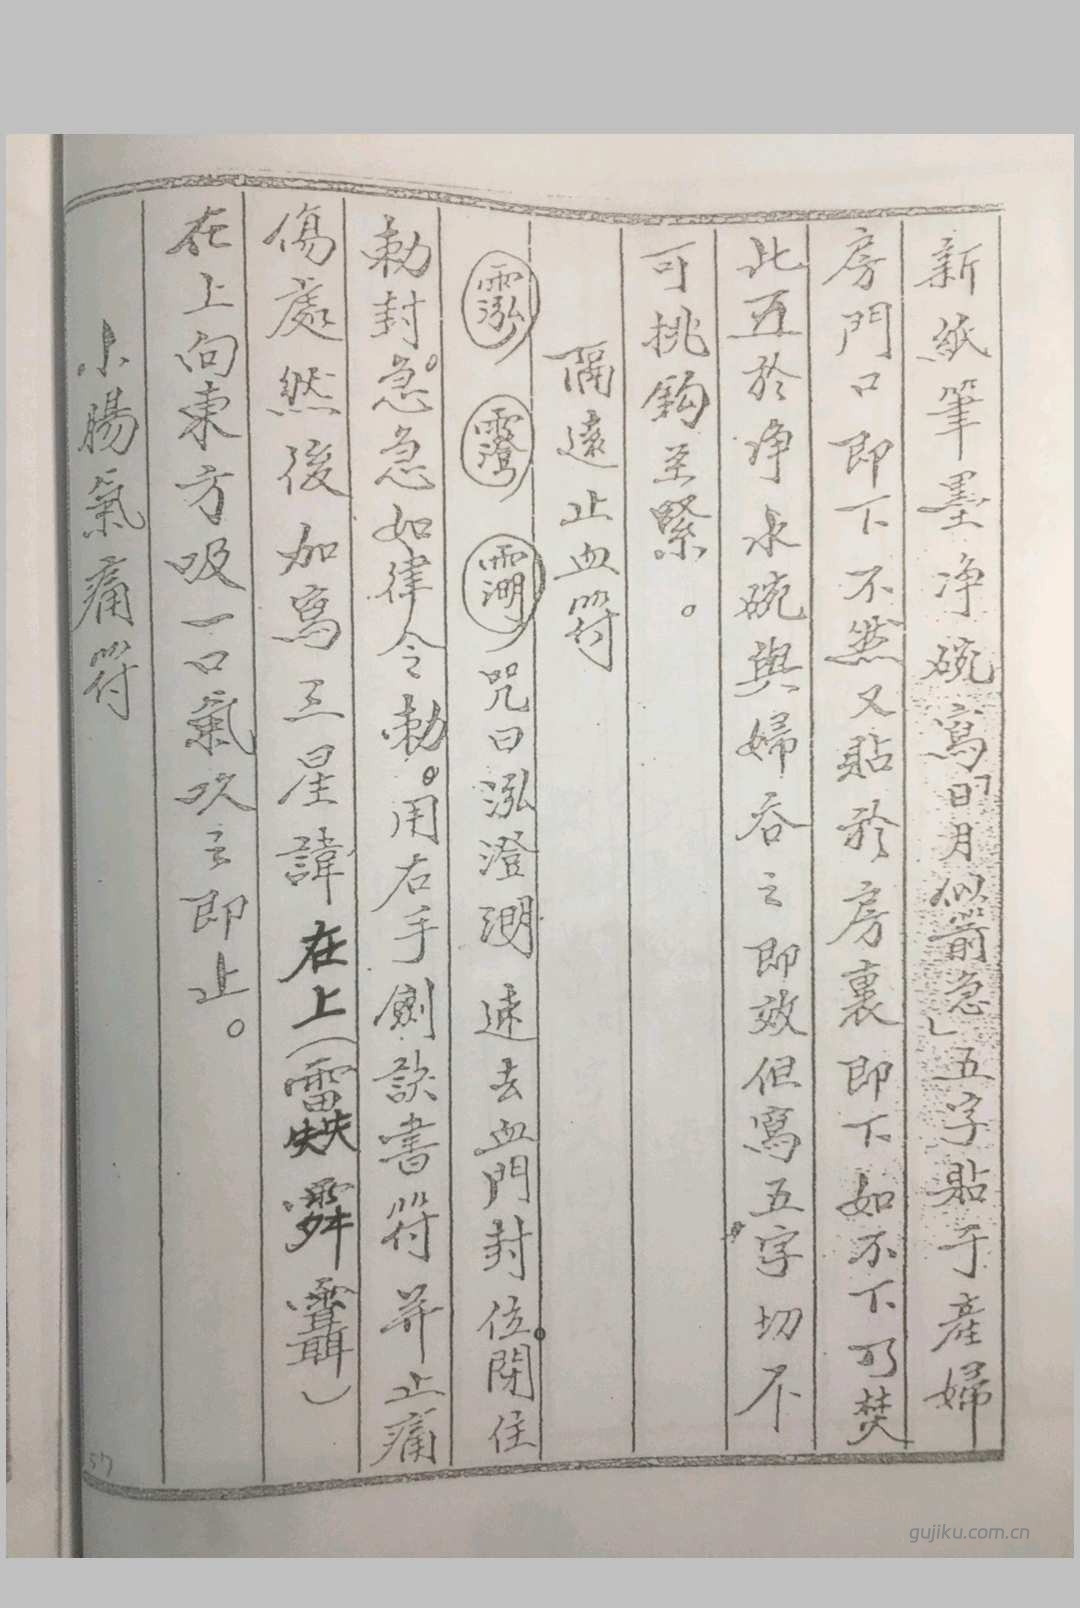 新紙筆墨净碗寫「日月似箭急」五字貼于產婦
房門口即下不然又貼於房裏即下如不下可焚
此五於净水碗與婦吞之即效但寫五字切不
可挑鈎至緊。
隔遠止血符
咒曰泓澄澖速去血門封位。閉住
勅封。急急如律令勅。用右手劍訣書符并止痛
傷處然後加寫三星諱在上(
)
在上向東方吸一口氣吹之即止。
小腸氣痛符
57
gujiku.com.cn